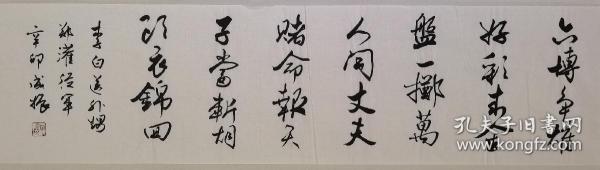 六博争雄
好彩来金
盘一掷万
人开丈夫
赌命报天
子当斩胡
头衣锦回
李白送外甥
郑灌从军
辛卯
孔夫子旧书网
www.kongfz.com